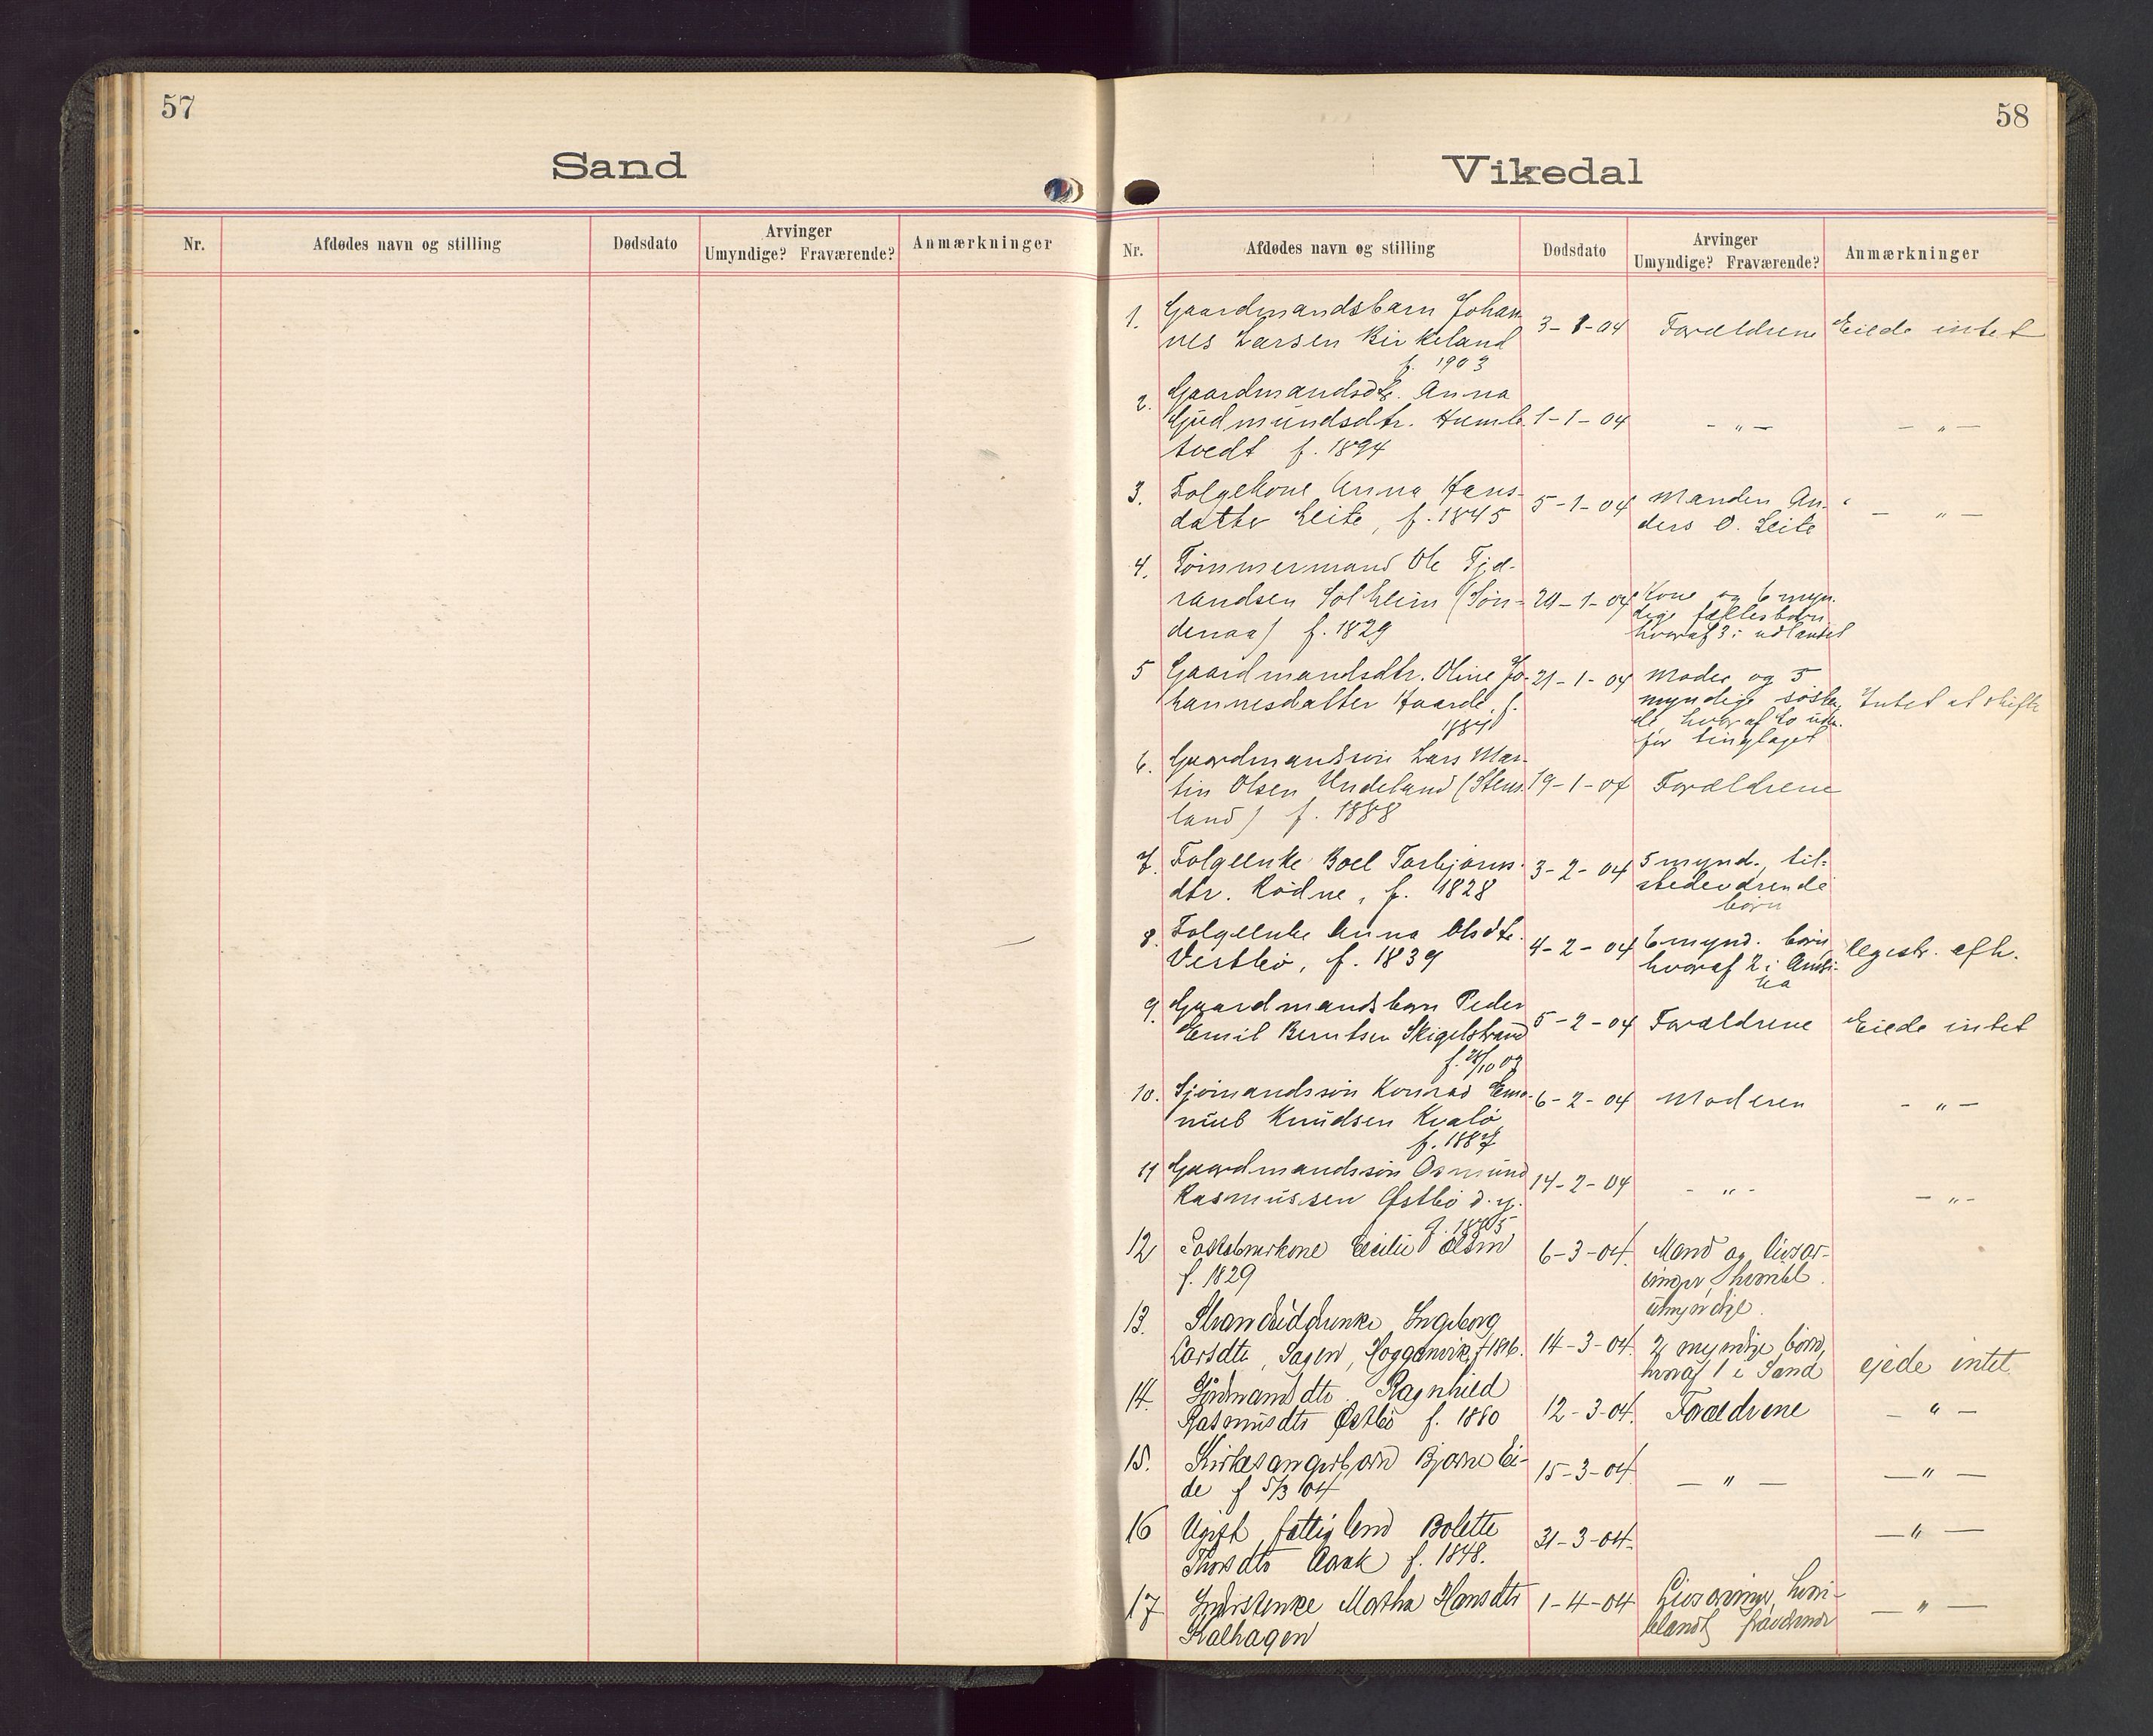 57
Sand
Nr. Afdødes navn og stilling Dødsdato Arvinger Umyndige? Fraværende? Anmærkninger
58
Vikedal
Nr. Afdødes navn og stilling Dødsdato Arvinger Umyndige? Fraværende? Anmærkninger
1. Gaardmandsbarn Johan-
nes Larsen Birkeland 3-1-04 Forældrene Eiede intet
f. 1903
2. Gaardmandsdtr. Anna
Gudmundsdtr. Humle 1-1-04 - " - - " -
tvedt f. 1894
3. Folgekone Anna Hans-
datter Leite, f. 1845 5-1-04 Manden An-
ders O. Leite - " -
4. Tømmermand Ole Tjd-
randsen Solheim (Søn- 24-1-04 Kone og 6 myn-
denaa) f. 1829 dige fællesbørn
hvoraf 3 i udlandet
5 Gaardmandsdtr. Oline Jo- 21-1-04 Moder og 5
hannesdatter Haarde, f. myndige søsken-
1884 de hvoraf to uden-
for tinglaget Intet at skifte
6. Gaardmandssøn Lars Mar-
tin Olsen Undeland (Stens- 19-1-04 Forældrene
land) f. 1888
7. Folgeenke Boel Torbjørns-
dtr. Rødne, f. 1828 3-2-04 5 mynd. til-
stedeværende
børn
8. Folgeenke Anna Olsdtr.
Vestbø, f. 1839 4-2-04 6 mynd. børn
hvoraf 2 i Ameri-
ka Registr. afh.
9. Gaardmandsbarn Peder
Emil Berntsen Skigelstrand 5-2-04 Forældrene Eiede intet
10. Sjømandssøn Konrad Ema- 6-2-04 Moderen - " -
nuel Knudsen Kvalø
f. 1887
11 Gaardmandssøn Osmund
Rasmussen Østbø d.y. 14-2-04 - " - - " -
12 Cecilie Olsen 6-3-04. Mand og livsar-
f. 1829 vinger,
umyndige.
13. Strandsidderenke Ingeborg
Larsdtr, Sagen, 14-3-04. 2 myndige børn,
hvoraf 1 i Sand ejede intet
14. Ragnhild
Rasmusdtr Østbø f. 1880 12-3-04. Forældrene - " -
15. Kirkesangerbarn Bjarne Ei-
de f 5/3 04 15-3-04 - " - - " -
16 Ugift fattiglem Bolette
Thorsdtr f. 1848. 31-3-04. - " -
17 Martha Hansdtr 1-4-04 Livsarvinger, hvori-
Kalhagen blandt fraværende - " -